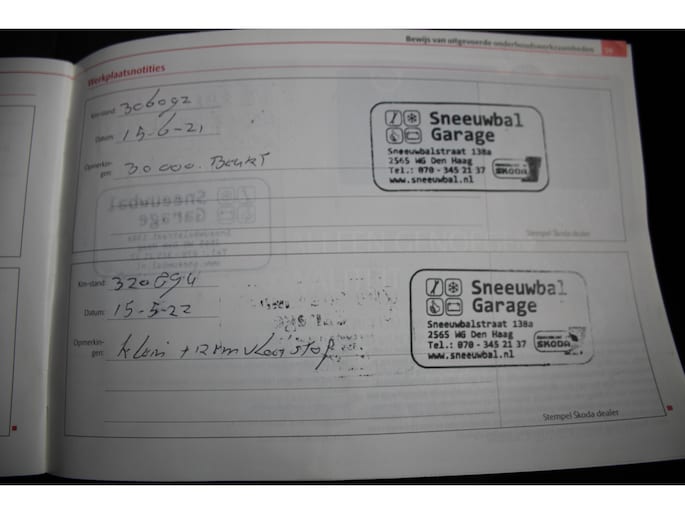 Bewijs van uitgevoerde onderhoudswerkzaamheden
Werkplaatsnotities
Km-stand: 306092
Datum: 15-6-21
Opmerkin-
gen: 30 000. BEURT
Sneeuwbal
Garage
Sneeuwbalstraat 138a
2565 WG Den Haag
Tel.: 070 - 345 21 37
www.sneeuwbal.nl
SKODA
Stempel Škoda dealer
Km-stand: 320894
Datum: 15-5-22
Opmerkin-
gen: klein + remvloeistof
Sneeuwbal
Garage
Sneeuwbalstraat 138a
2565 WG Den Haag
Tel.: 070 - 345 21 37
www.sneeuwbal.nl
SKODA
Stempel Škoda dealer